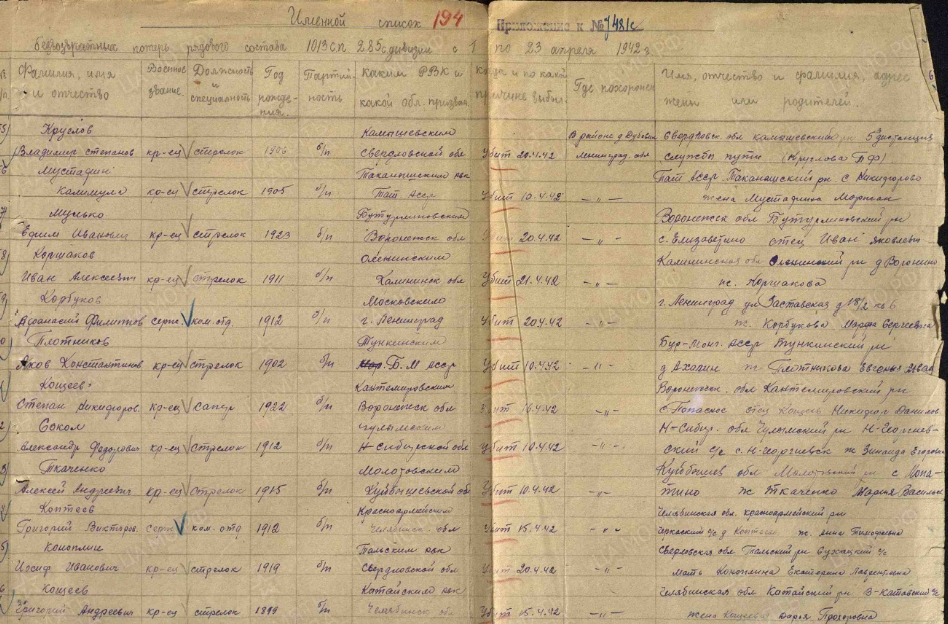 Именной список 194 Приложение к № 7481с
безвозвратных потерь рядового состава 1013 сп 285 с. дивизии с 1 по 23 апреля 1942 г
Фамилия, имя и отчество Военное звание Должность и специальность Год рождения Партийность каким РВК и какой обл. призван Когда и по какой причине выбыл Где похоронен Имя, отчество и фамилия, адрес жены или родителей
Круглов Камышевским в районе д. Дубовик Свердловск обл Камышевский 5 дистанция
Владимир Степанов кр-ец стрелок 1906 б/п Свердловской обл Убит 20.4.42 Ленинград обл службы пути (Круглова П Ф)
Мустафин Такан
Калимула кр-ец стрелок 1905 б/п Тат Асср Убит 10.4.42 -"- жена Мустафина
Мулько Бутурлиновский Воронежск обл Бутурлиновский рн
Ефим Иванович кр-ец стрелок 1923 б/п Воронеж обл Убит 20.4.42 -"- с. Елизаветино отец Иван Яковлевич
Коршаков Оленинским Калининская обл Оленинский рн д Воронино
Иван Алексеевич кр-ец стрелок 1911 б/п Калининск обл Убит 21.4.42 -"- ж. Коршакова
Корбуков Московским г. Ленинград ул Заставская д 18/2 кв 6
Афанасий Филиппов серж ком. отд. 1912 б/п г. Ленинград Убит 20.4.42 -"- ж. Корбукова Марфа Сергеевна
Плотников Тункинским Бур-Монг. Асср Тункинский рн
Яков Константинов кр-ец стрелок 1902 б/п Б. М асср Убит 10.4.42 -"- ж Плотникова
Кощеев Кантемировским Воронежск обл Кантемировский рн
Степан Никифоров кр-ец Сапер 1922 б/п Воронежск обл Убит 16.4.42 -"- с. Попасное отец Кощеев Никифор Данилов
Соком Чулымским Н-Сибир. обл Чулымский рн Н-Георгиев-
Александр Федорович кр-ец стрелок 1912 б/п Н-Сибирской обл Убит 10.4.42 -"- ский с/с с. Н-Георгиевск ж Зинаида Егоровн
Ткаченко Молотовским Куйбышев обл Молотовский рн с Лопа-
Алексей Андреевич кр-ец стрелок 1915 б/п Куйбышевской обл Убит 10.4.42 -"- тино ж Ткаченко Мария Василь
Коптеев Красноармейским Челябинск обл. Красноармейский рн
Григорий Викторов серж ком. отд 1912 б/п Челябинск обл Убит 15.4.42 -"- ж. Анна Тимофеевна
Коноплин Талским рвк Свердловская обл Талский рн
Иосиф Иванович кр-ец стрелок 1919 б/п Свердловской обл Убит 20.4.42 -"- мать Коноплина Екатерина Лаврентьевна
Кощеев Катайским рвк Челябинская обл Катайский рн В-Катавский с/с
Григорий Андреевич кр-ец стрелок 1899 б/п Челябинск обл Убит 15.4.42 -"- жена Кощеева Дарья Прохоровна